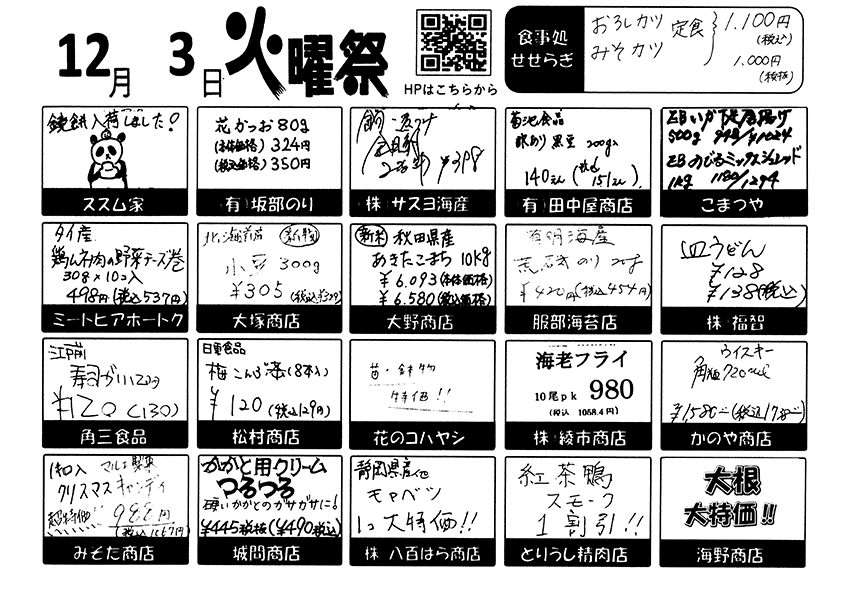 12月 3日 火曜祭
HPはこちらから
食事処
せせらぎ
おろしカツ 定食
みそカツ
1.100円
(税込)
1.000円
(税抜)
鏡餅入荷しました!
ススム家
花かつお80g
(本体価格) 324円
(税込価格) 350円
(有)坂部のり
¥398
(株)サスヨ海産
菊池食品
訳あり 黒豆 200g入
140えん (税込 151えん)
(有)田中屋商店
500g
1kg 1180/1274
こまつや
タイ産
鶏ムネ肉の野菜チーズ巻
30g×10コ入
498円(税込537円)
ミートヒアホートク
北海道産
小豆 300g
¥305
大塚商店
新米 秋田県産
あきたこまち 10kg
¥6.093(本体価格)
¥6.580(税込価格)
大野商店
有明海産
¥420円(税込454円)
服部海苔店
皿うどん
¥128
¥138(税込)
(株)福智
江戸前
¥120 (130)
角三食品
日東食品
梅こんぶ茶(8本入)
¥120 (税込129円)
松村商店
苗・鉢物
特価!!
花のコハヤシ
海老フライ
10尾pk 980
(税込 1058.4円)
(株)綾市商店
ウイスキー
角瓶720ml
かのや商店
1キロ入 マルエ製菓
クリスマスキャンディ
超特価!! 988円
みそた商店
かかと用クリーム
つるつる
硬いかかとのガサガサに!
¥445税抜(¥490税込)
城間商店
静岡県産他
キャベツ
1コ大特価!!
(株)八百はら商店
紅茶鴨
スモーク
1割引!!
とりうし精肉店
大根
大特価!!
海野商店